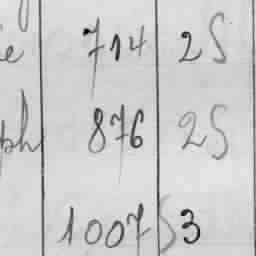 ie 714 2S
ph 876 2S
1007 S3